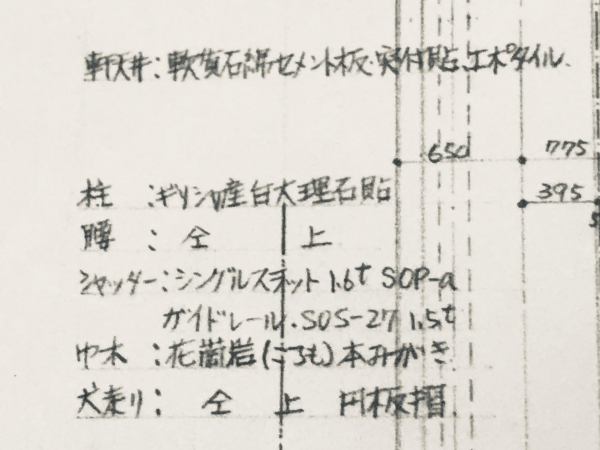 軒天井：軟質石綿セメント板・突付貼、エポタイル.
650 775
柱 ：ギリシャ産白大理石貼
395
腰 ： 仝 上
シャッター：シングルスラット 1.6t SOP-a
ガイドレール・SUS-27 1.5t
巾木 ：花崗岩(ころも)本みがき
犬走り： 仝 上